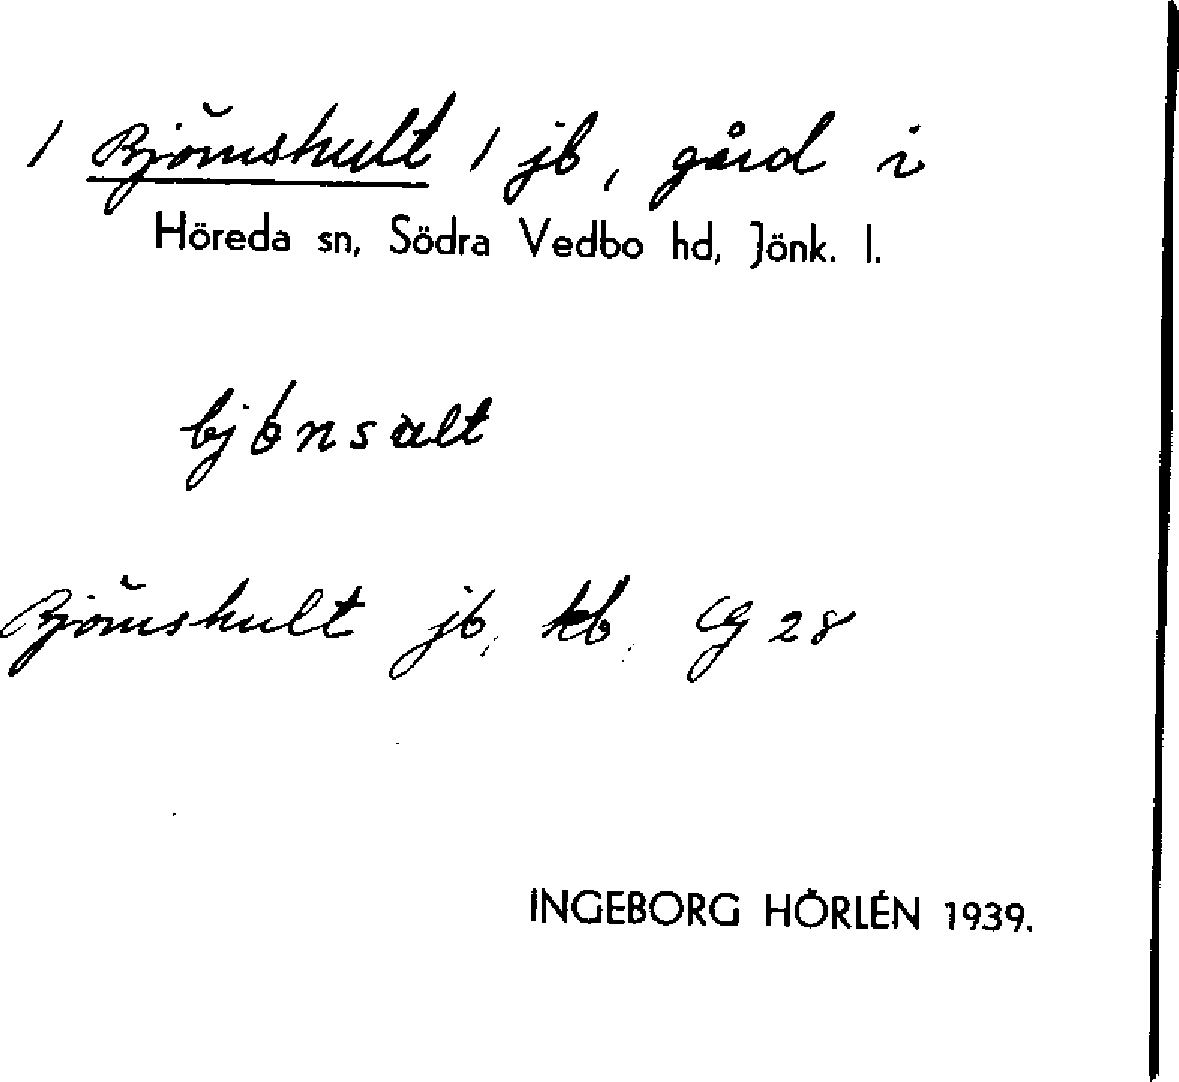 / Björnshult / jb, gård i
Höreda sn, Södra Vedbo hd, Jönk. l.
bjönsalt
Björnshult jb, kb. Cg 28
INGEBORG HÖRLÉN 1939.